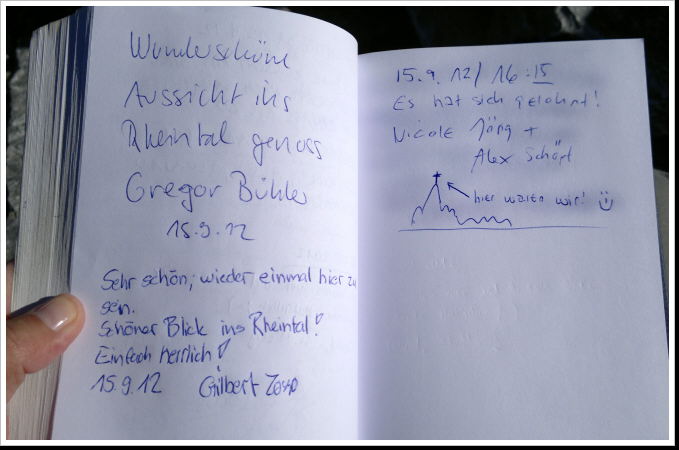 Wunderschöne
Aussicht ins
Rheintal genoss
Gregor Bühler
15.9.12
Sehr schön, wieder einmal hier zu
sein.
Schöner Blick ins Rheintal!
Einfach herrlich!
15.9.12 Gilbert Zosso
15.9.12/16:15
Es hat sich gelohnt!
Nicole Jörg +
Alex Schöpf
hier waren wir!